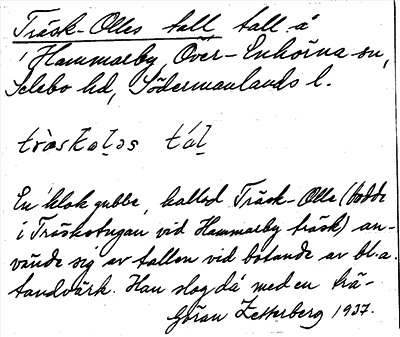 Träsk-Olles tall tall å
i Hammarby, Över-Enhörna sn,
Selebo hd, Södermanlands l.
tròskaləs tál
En klok gubbe, kallad Träsk-Olle (bodde
i Träskstugan vid Hammarby träsk) an-
vände sig av tallen vid botande av bl.a.
tandvärk. Han slog då med en trä-
Göran Zetterberg 1937.